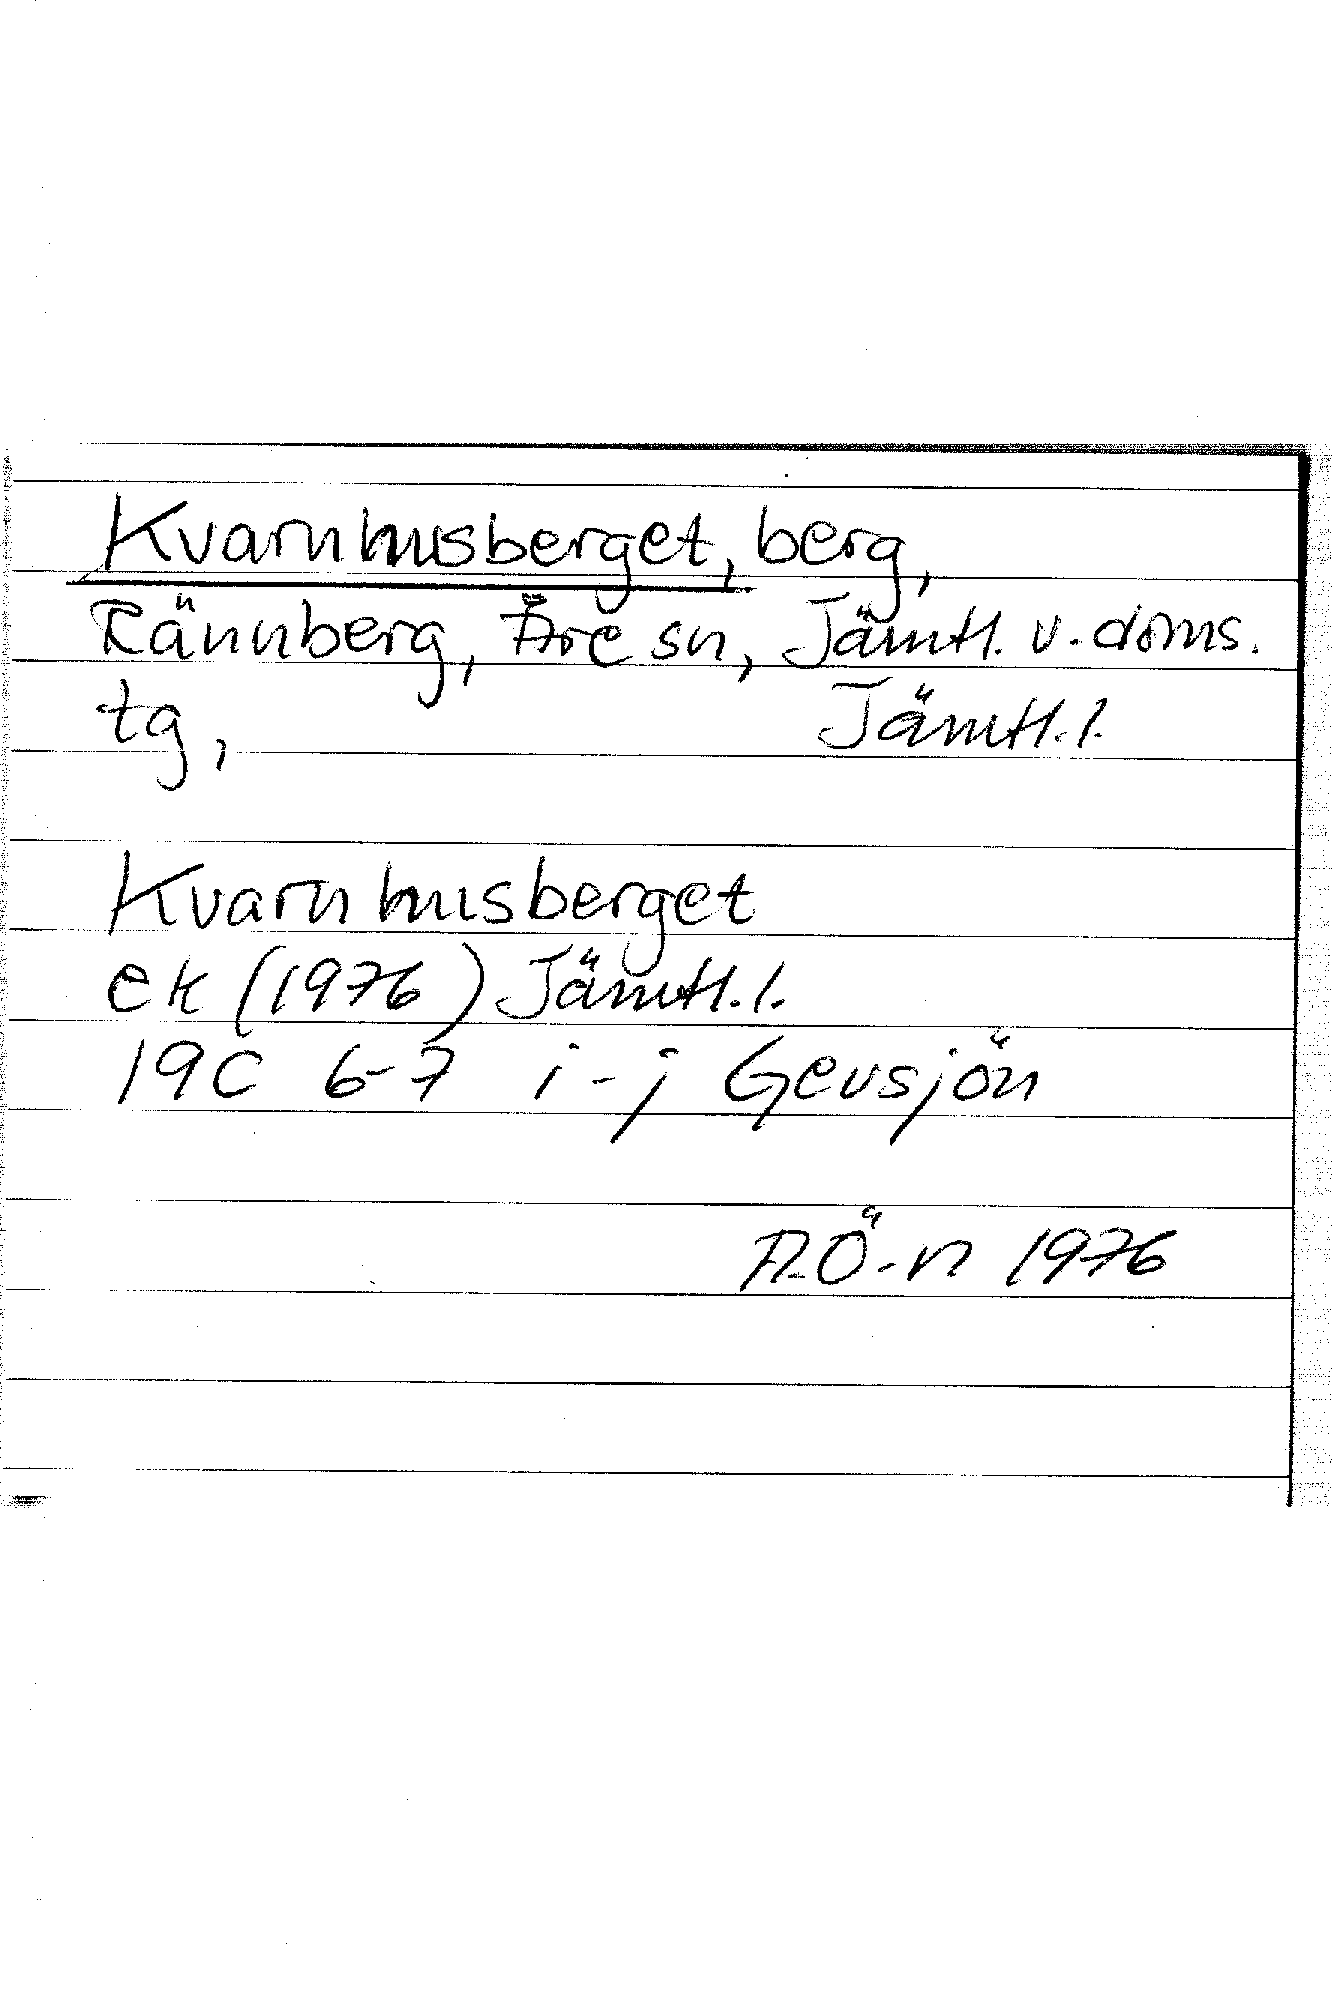 Kvarnhusberget, berg,
Rännberg, Åre sn, Jämtl. v. doms.
tg, Jämtl. l.
Kvarnhusberget
ek (1976) Jämtl. l.
19C 6-7 i-j Gevsjön
A.Ö-n 1976